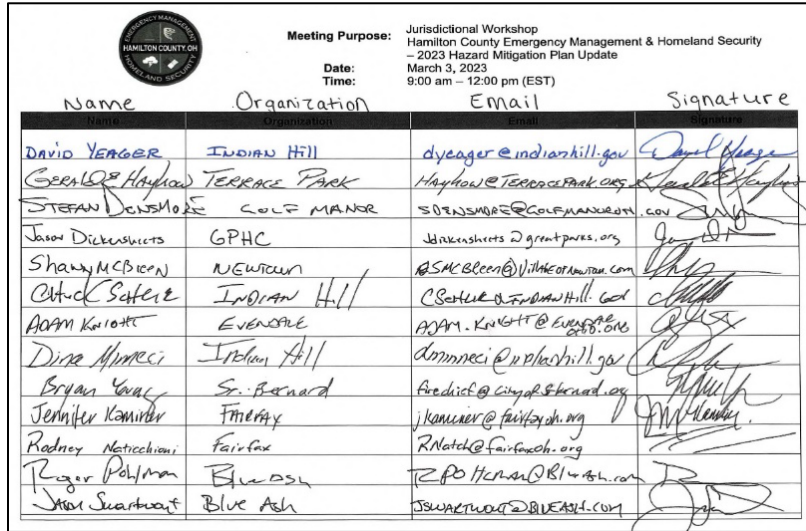 EMERGENCY MANAGEMENT
HAMILTON COUNTY, OH
HOMELAND SECURITY
Meeting Purpose: Jurisdictional Workshop
Hamilton County Emergency Management & Homeland Security
– 2023 Hazard Mitigation Plan Update
Date: March 3, 2023
Time: 9:00 am – 12:00 pm (EST)
Name Organization Email Signature
Name Organization Email Signature
DAVID YEAGER INDIAN Hill dyeager@indianhill.gov
GERALD E HAYHOW TERRACE PARK HAYHOW@TERRACEPARK.ORG
STEFAN DENSMORE GOLF MANOR SDENSMORE@GOLFMANOROH.GOV
Jason Dickensheets GPHC jdickensheets@greatparks.org
Shawn McBreen NEWTOWN SMCBreen@VillageofNewtown.com
Chuck INDIAN Hill
ADAM KNIGHT EVENDALE ADAM.KNIGHT@EVENDALEOHIO.ORG
Dina Minneci Indian Hill dminneci@indianhill.gov
Bryan Young St. Bernard firechief@cityofstbernard.org
Jennifer Kaminer FAIRFAX jkaminer@fairfaxoh.org
Rodney Naticchioni Fairfax RNatch@fairfaxoh.org
Roger Pohlman Blue Ash RPOHLMAN@BlueAsh.com
JASON Swartwout Blue Ash JSWARTWOUT@BLUEASH.COM